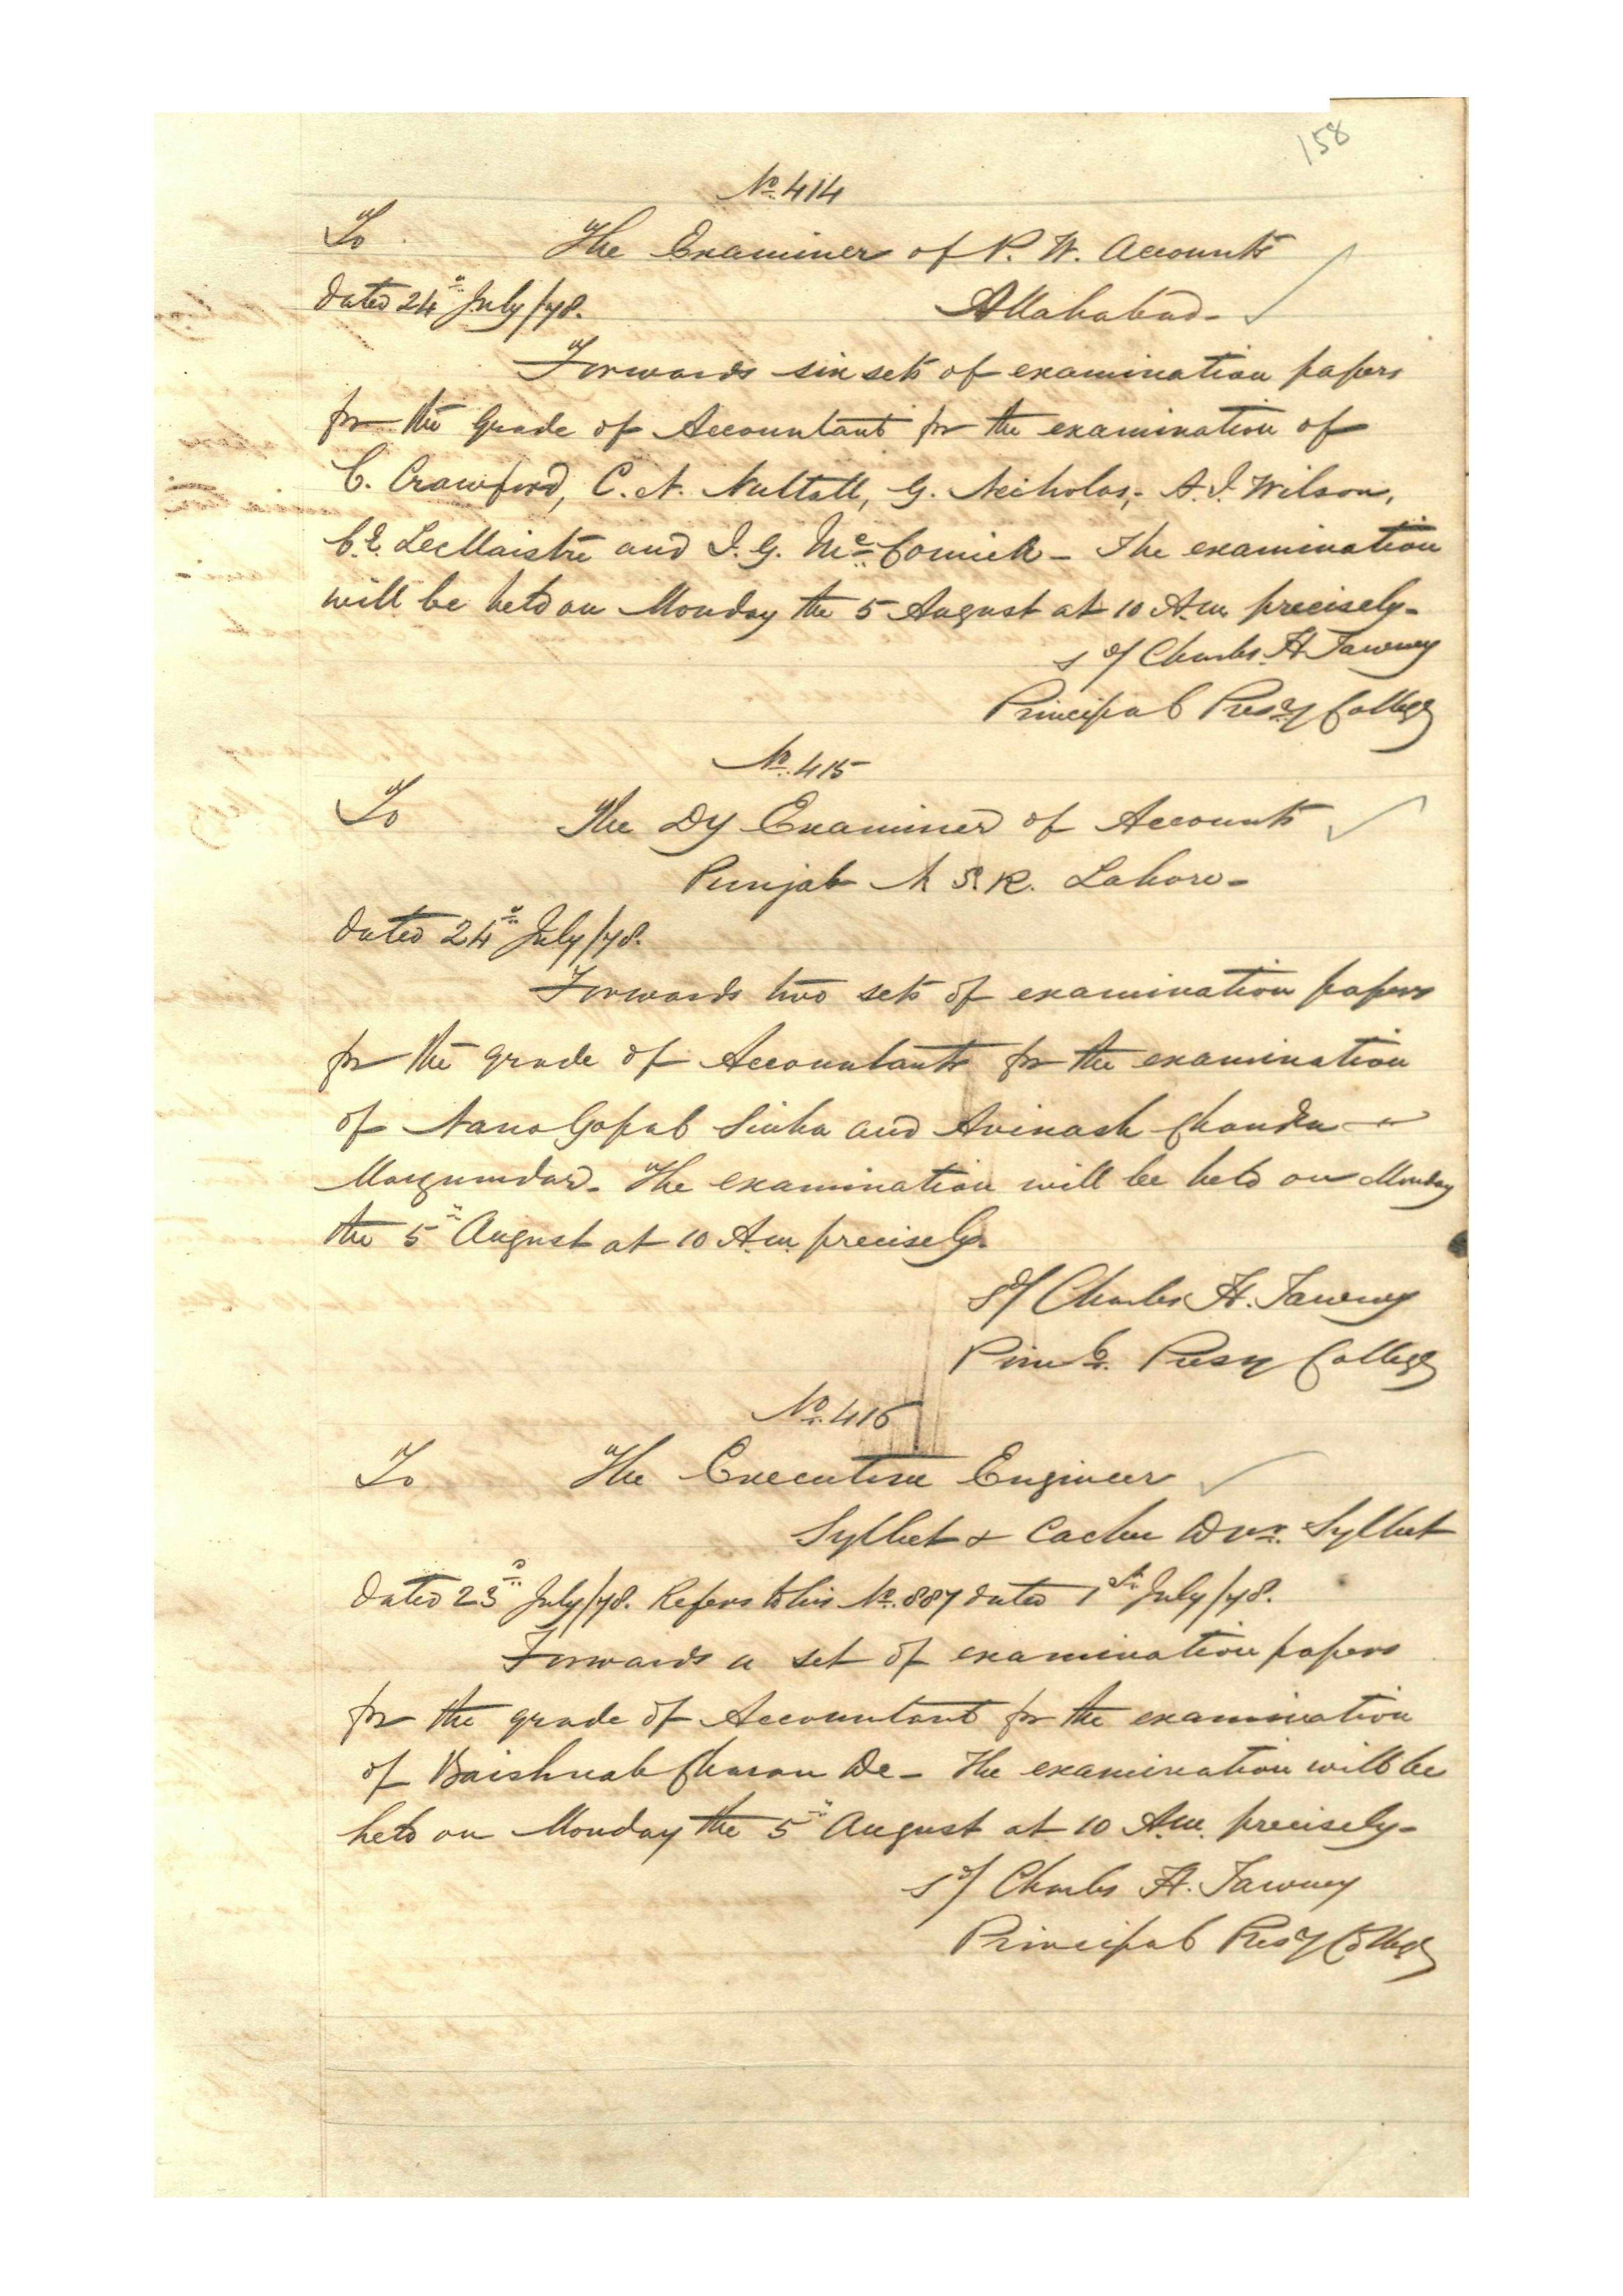 158
No. 414
To The Examiner of P. W. Accounts
Dated 24th July/78. Allahabad.
Forwards six sets of examination papers
for the Grade of Accountant for the examination of
C. Crawford, C. N. Nuttall, G. Nicholas, A. J. Wilson,
C. E. LeeMaistre and J. G. McComick - The examination
will be held on Monday the 5 August at 10 A.m. precisely.
Sd/ Charles H Tawney
Principal Presy College
No. 415
To The Dy Examiner of Accounts
Punjab N S R. Lahore.
Dated 24th July/78.
Forwards two sets of examination papers
for the grade of Accountants for the examination
of Gopal Sinha and Avinash Chandra
Mazumdar. The examination will be held on Monday
the 5th August at 10 A.m. precisely.
Sd/ Charles H. Tawney
Prinl. Presy College
No. 416
To The Executive Engineer
Sylhet & Cachar Dvn. Sylhet
Dated 23rd July/78. Refers to his No. 887 dated 1st July/78.
Forwards a set of examination papers
for the grade of Accountant for the examination
of Baishnab Charan De - The examination will be
held on Monday the 5th August at 10 A.m. precisely.
Sd/ Charles H. Tawney
Principal Presy College